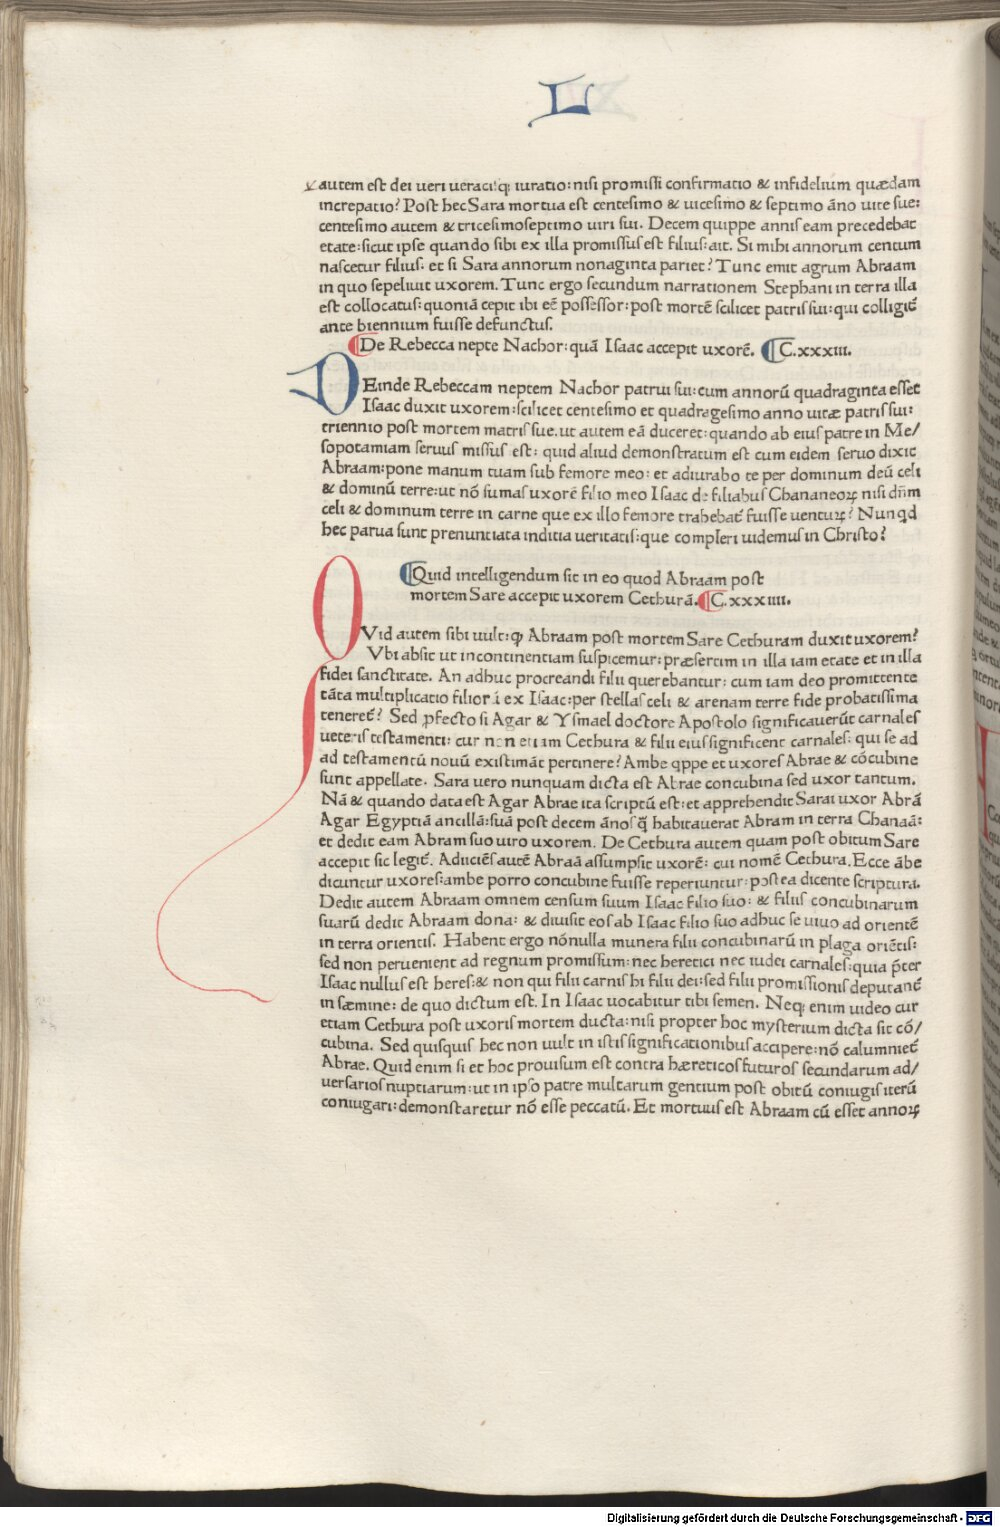 L
autem est dei ueri ueracisq; iuratio: nisi promissi confirmatio & infidelium quædam
increpatio? Post hec Sara mortua est centesimo & uicesimo & septimo ãno uite sue:
centesimo autem & tricesimoseptimo uiri sui. Decem quippe annis eam precedebat
etate: sicut ipse quando sibi ex illa promissus est filius: ait. Si mihi annorum centum
nascetur filius: et si Sara annorum nonaginta pariet? Tunc emit agrum Abraam
in quo sepeliuit uxorem. Tunc ergo secundum narrationem Stephani in terra illa
est collocatus: quoniã cepit ibi eē possessor: post mortē scilicet patris sui: qui colligit̃
ante biennium fuisse defunctus.
De Rebecca nepte Nachor: quã Isaac accepit uxorē. C.xxxiii.
DEinde Rebeccam neptem Nachor patrui sui: cum annorũ quadraginta esset
Isaac duxit uxorem: scilicet centesimo et quadragesimo anno uitæ patris sui:
triennio post mortem matris sue. ut autem eã duceret: quando ab eius patre in Me/
sopotamiam seruus missus est: quid aliud demonstratum est cum eidem seruo dixit
Abraam: pone manum tuam sub femore meo: et adiurabo te per dominum deũ celi
& dominũ terre: ut nõ sumas uxorē filio meo Isaac de filiabus Chananeoꝝ nisi dñm
celi & dominum terre in carne que ex illo femore trahebat̃ fuisse uentuꝝ? Nunqd
hec parua sunt prenunciata inditia ueritatis: que compleri uidemus in Christo?
Quid intelligendum sit in eo quod Abraam post
mortem Sare accepit uxorem Cethurã. C.xxxiiii.
QVid autem sibi uult: ꝙ Abraam post mortem Sare Cethuram duxit uxorem?
Vbi absit ut incontinentiam suspicemur: præsertim in illa iam etate et in illa
fidei sanctitate. An adhuc procreandi filii querebantur: cum iam deo promittente
tãta multiplicatio filiorũ ex Isaac: per stellas celi & arenam terre fide probatissima
teneret̃? Sed ꝓfecto si Agar & Ysmael doctore Apostolo significauerũt carnales
ueteris testamenti: cur non etiam Cethura & filii eius significent carnales: qui se ad
ad testamentũ nouũ existimãt pertinere? Ambe qppe et uxores Abrae & cõcubine
sunt appellate. Sara uero nunquam dicta est Abrae concubina sed uxor tantum.
Nã & quando data est Agar Abrae ita scriptũ est: et apprehendit Sarai uxor Abrã
Agar Egyptiã ancillã: suã post decem ãnos q̃ habitauerat Abram in terra Chanaã:
et dedit eam Abram suo uiro uxorem. De Cethura autem quam post obitum Sare
accepit sic legit̃. Adiiciēs autē Abraã assumpsit uxorē: cui nomē Cethura. Ecce ãbe
dicuntur uxores: ambe porro concubine fuisse reperiuntur: postea dicente scriptura.
Dedit autem Abraam omnem censum suum Isaac filio suo: & filiis concubinarum
suarũ dedit Abraam dona: & diuisit eos ab Isaac filio suo adhuc se uiuo ad orientē
in terra orientis. Habent ergo nõnulla munera filii concubinarũ in plaga oriētis:
sed non peruenient ad regnum promissum: nec heretici nec iudei carnales: quia p̃ter
Isaac nullus est heres: & non qui filii carnis hi filii dei: sed filii promissionis deputant̃
in sæmine: de quo dictum est. In Isaac uocabitur tibi semen. Neq; enim uideo cur
etiam Cethura post uxoris mortem ducta: nisi propter hoc mysterium dicta sit cõ/
cubina. Sed quisquis hec non uult in istis significationibus accipere: nõ calumniet̃
Abrae. Quid enim si et hoc prouisum est contra hæreticos futuros secundarum ad/
uersarios nuptiarum: ut in ipso patre multarum gentium post obitũ coniugis iterũ
coniugari: demonstaretur nõ esse peccatũ. Et mortuus est Abraam cũ esset annoꝝ
Digitalisierung gefördert durch die Deutsche Forschungsgemeinschaft - DFG